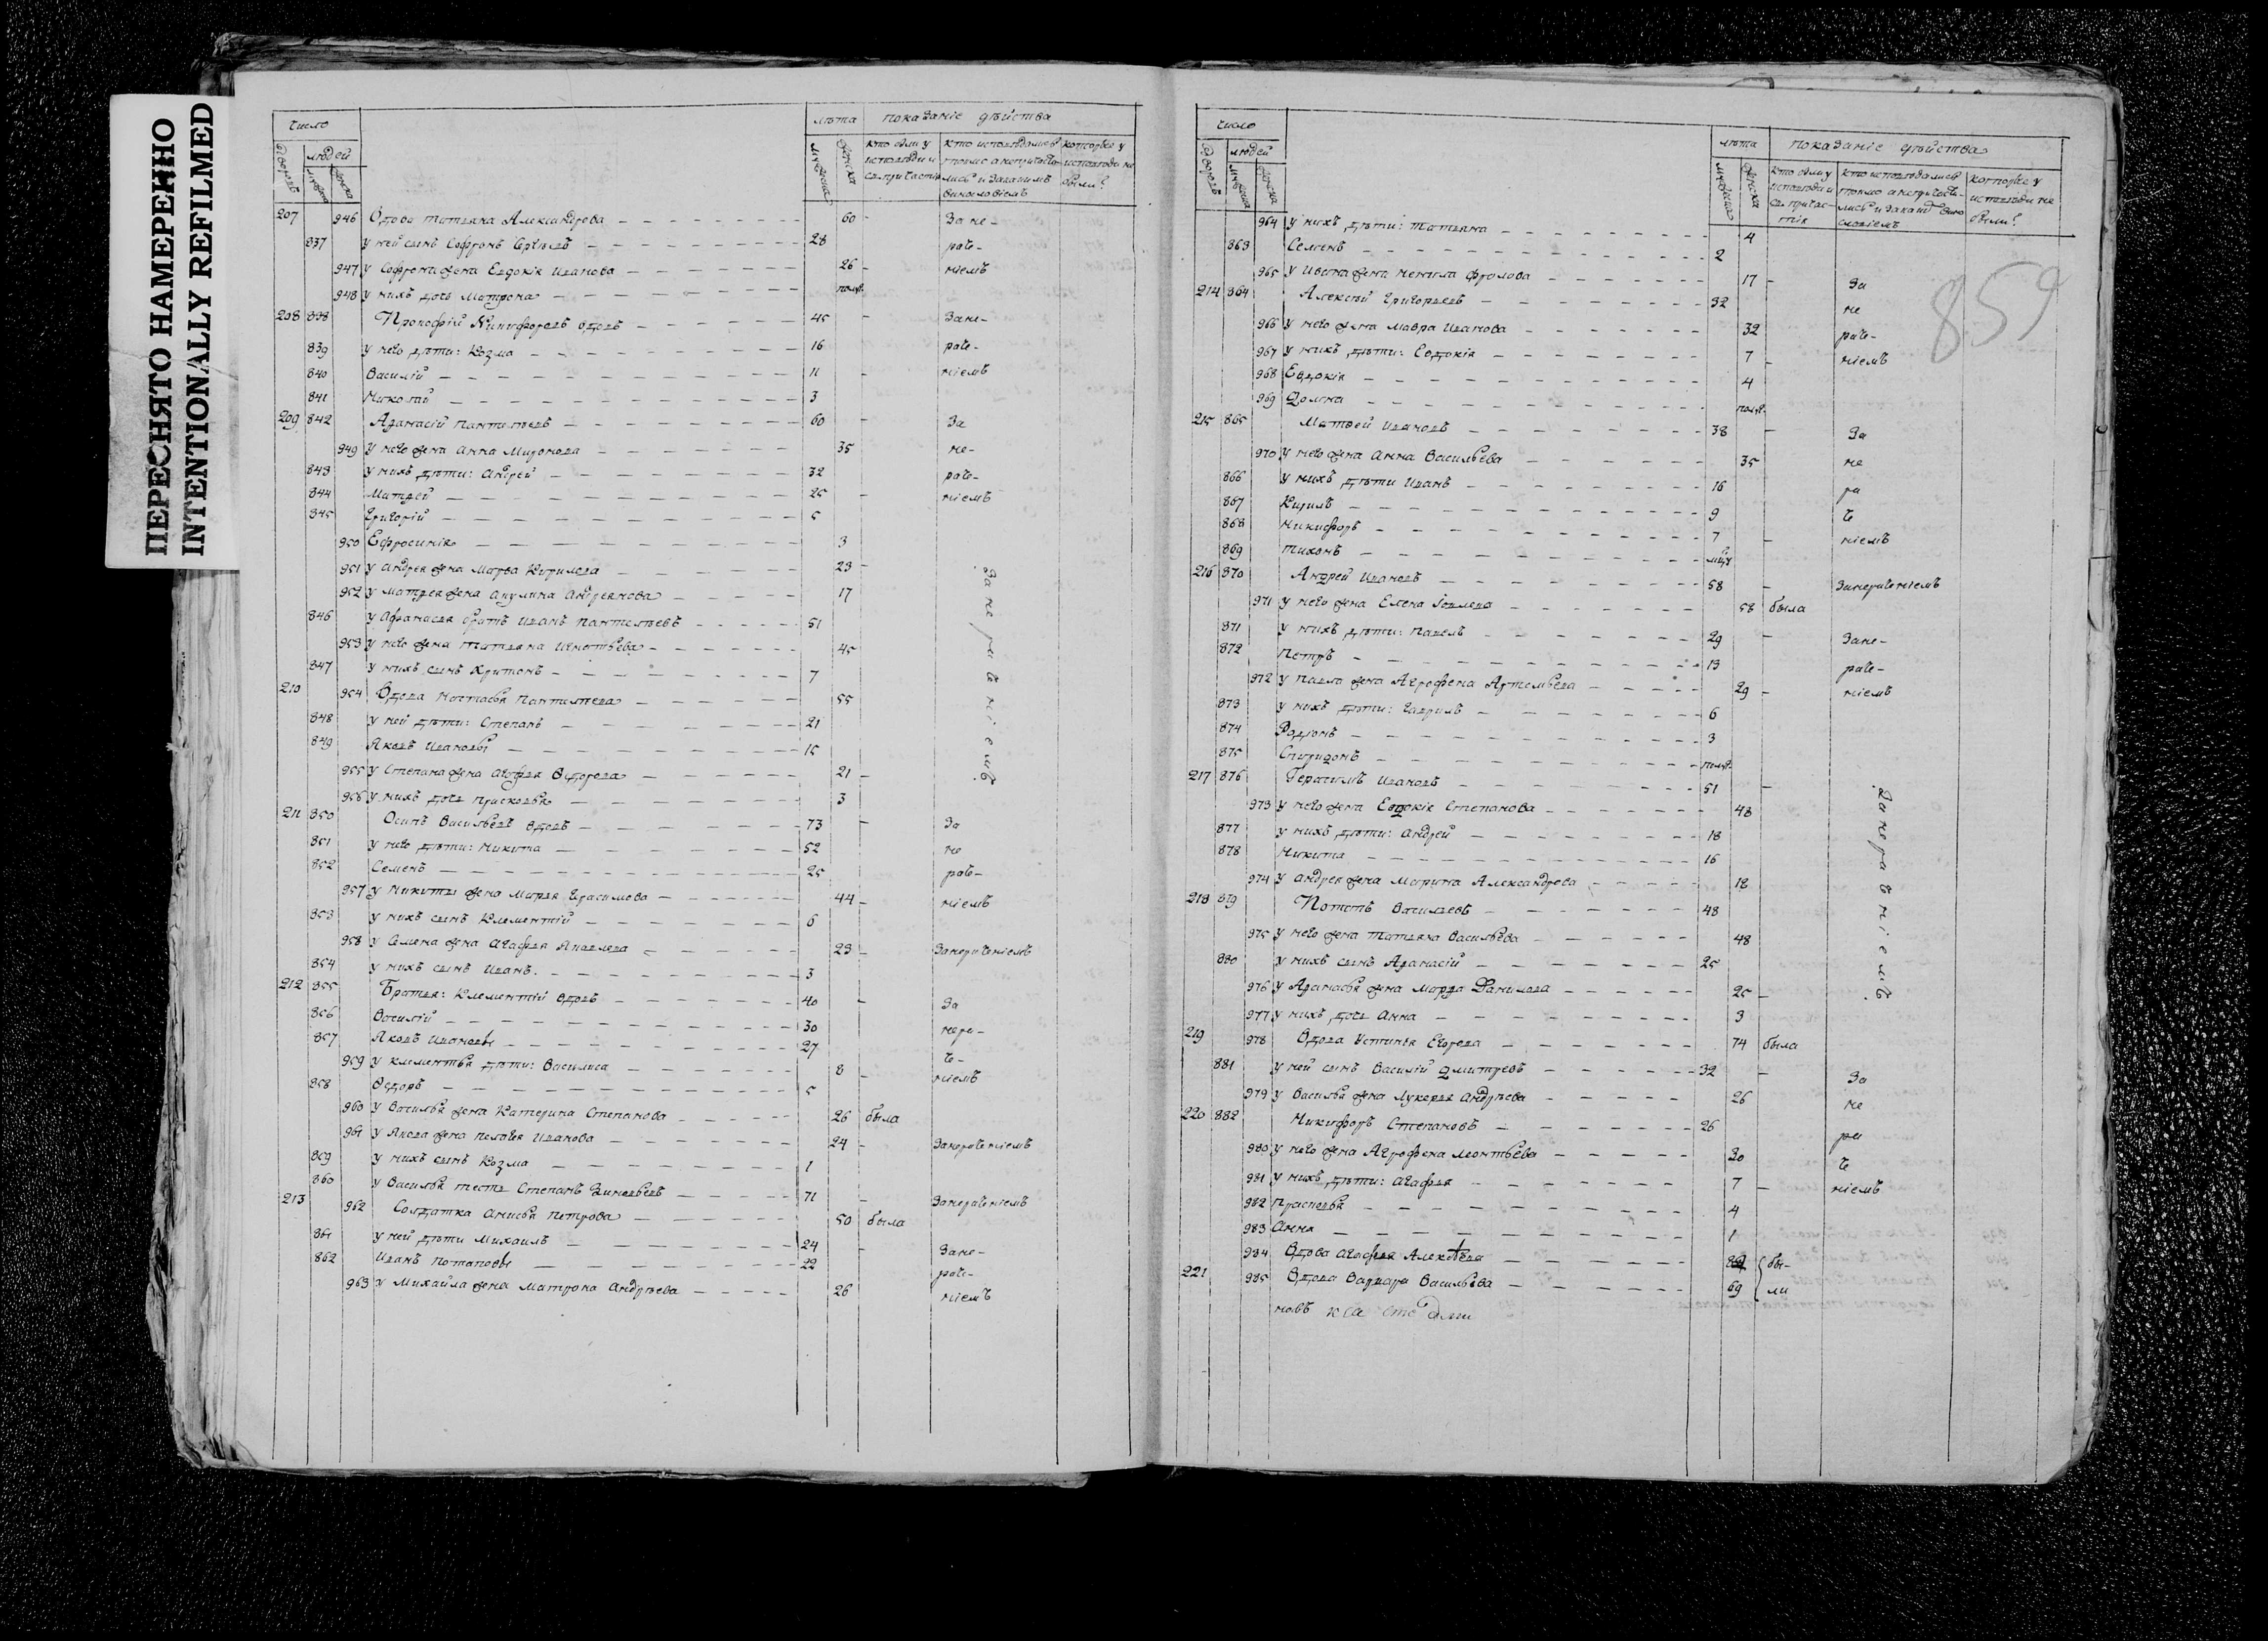 ПЕРЕСНЯТО НАМЕРЕННО
INTENTIONALLY REFILMED
число
лѣта показаніе дѣйства
дворовъ
людей
мужска
женска
мужска
женска
кто были у исповѣди и св. причастія
кто исповѣдались токмо а не причастились и за каким винословіемъ
которые у исповѣди не были?
207 946 Вдова татьяна Александрова 60 - За не-
837 у ней сынъ Софронъ 28 раче-
947 у Софрона жена Евдокія Иванова 26 - ніемъ
948 у нихъ дочь Матрона полг.
208 838 Прокофій Никифоровъ вдовъ 45 - Зане-
839 у него дѣти: Козма 16 раче-
840 Василій 11 - ніемъ
841 Николай 3
209 842 Афанасій Пантилѣевъ 60 - За
949 у него жена Анна Миронова 35 не-
843 у нихъ дѣти: Андрей 32 раче-
844 Матфей 25 - ніемъ
845 Григорій 5
950 Ефросинія 3
951 у Андрея жена Марфа Кирилова 23 -
952 у Матфея жена Акулина Андреянова 17
846 у Афанасья братъ Иванъ Пантилѣевъ 51
953 у него жена татьяна Игнатьева 45
847 у нихъ сынъ Харитонъ 7
За нераченіемъ
210 954 Вдова Настасья Пантилѣева 55
848 у ней дѣти: Степанъ 21
849 Яковъ Ивановы 15
955 у Степана жена Агафья Ѳедорова 21 -
956 у нихъ дочь Прасковья 3
211 850 Осипъ Васильевъ вдовъ 73 - За
851 у него дѣти: Никита 52 не
852 Семенъ 25 раче-
957 у Никиты жена Марья Герасимова 44 - ніемъ
853 у нихъ сынъ Клементій 6
958 у Семена жена Агафья Яковлева 23 - Занерачениемъ
854 у нихъ сынъ Иванъ. 3
212 855 Братья: Клементій вдовъ 40 - За
856 Василій 30 нера-
857 Яковъ Ивановы 27 че-
959 у Клементья дѣти: Василиса 8 - ніемъ
858 Ѳедоръ 5
960 у Василья жена Катерина Степанова 26 была
961 у Якова жена Пелагея Иванова 24 - Занераченіемъ
859 у нихъ сынъ Козма 1
860 у Василья тесть Степанъ Зиновьевъ 71 - Занераченіемъ
213 962 Солдатка Анисья Петрова 50 была
861 у ней дѣти Михаилъ 24 - Зане-
862 Иванъ Потаповы 22 раче-
963 у Михайла жена Матрона Андрѣева 26 ніемъ
859
число
лѣта показаніе дѣйства
дворовъ
людей
мужска
женска
мужска
женска
кто были у исповѣди и св. причастія
кто исповѣдались токмо а не причастились и за каким винословіемъ
которые у исповѣди не были?
964 у нихъ дѣти: татьяна 4
863 Семенъ 2
965 у Ивана жена Ненила Фролова 17 - За
214 864 Алексѣй Григорьевъ 32 не
966 у него жена Мавра Иванова 32 раче-
967 у нихъ дѣти: Евдокія 7 - ніемъ
968 Евдокія 4
969 Домна полг.
215 865 Матвей Ивановъ 38 - За
970 у него жена Анна Васильева 35 не
866 у нихъ дѣти Иванъ 16 ра
867 Кирилъ 9 че
868 Никифоръ 7 - ніемъ
869 тихонъ
216 870 Андрей Ивановъ 58 - Занераченіемъ
971 у него жена Елена 58 была
871 у нихъ дѣти: Павелъ 29 - Зане-
872 Петръ 13 раче-
972 у Павла жена Агрофена Артемьева 29 - ніемъ
873 у нихъ дѣти: Гаврилъ 6
874 Родіонъ 3
875 Спиридонъ полг.
217 876 Герасимъ Ивановъ 51 -
973 у него жена Евдокія Степанова 48
877 у нихъ дѣти: Андрей 18
878 Никита 16
974 у Андрея жена Марина Александрова 18
За нерачениемъ
218 879 Потапъ Васильевъ 48
975 у него жена татьяна Васильева 48
880 у нихъ сынъ Афанасій 25
976 у Афанасья жена Марфа Данилова 25 -
977 у нихъ дочь Анна 3
219 978 Вдова Устинья Егорова 74 была
881 у ней сынъ Василій Дмитревъ 32 - За
979 у Василья жена Лукерья Андрѣева 26 не
220 882 Никифоръ Степановъ 26 ра
980 у него жена Агрофена Леонтьева 20 че
981 у нихъ дѣти: Агафья 7 - ніемъ
982 Прасковья 4
983 Анна 1
984 Вдова Агафья Алексѣева бы-
221 985 Вдова Варвара Васильева 69 ли